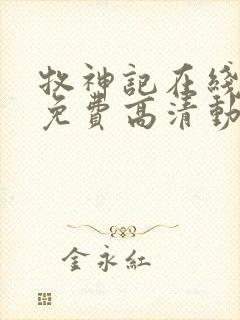 牧神记在线
免费高清动
金永红